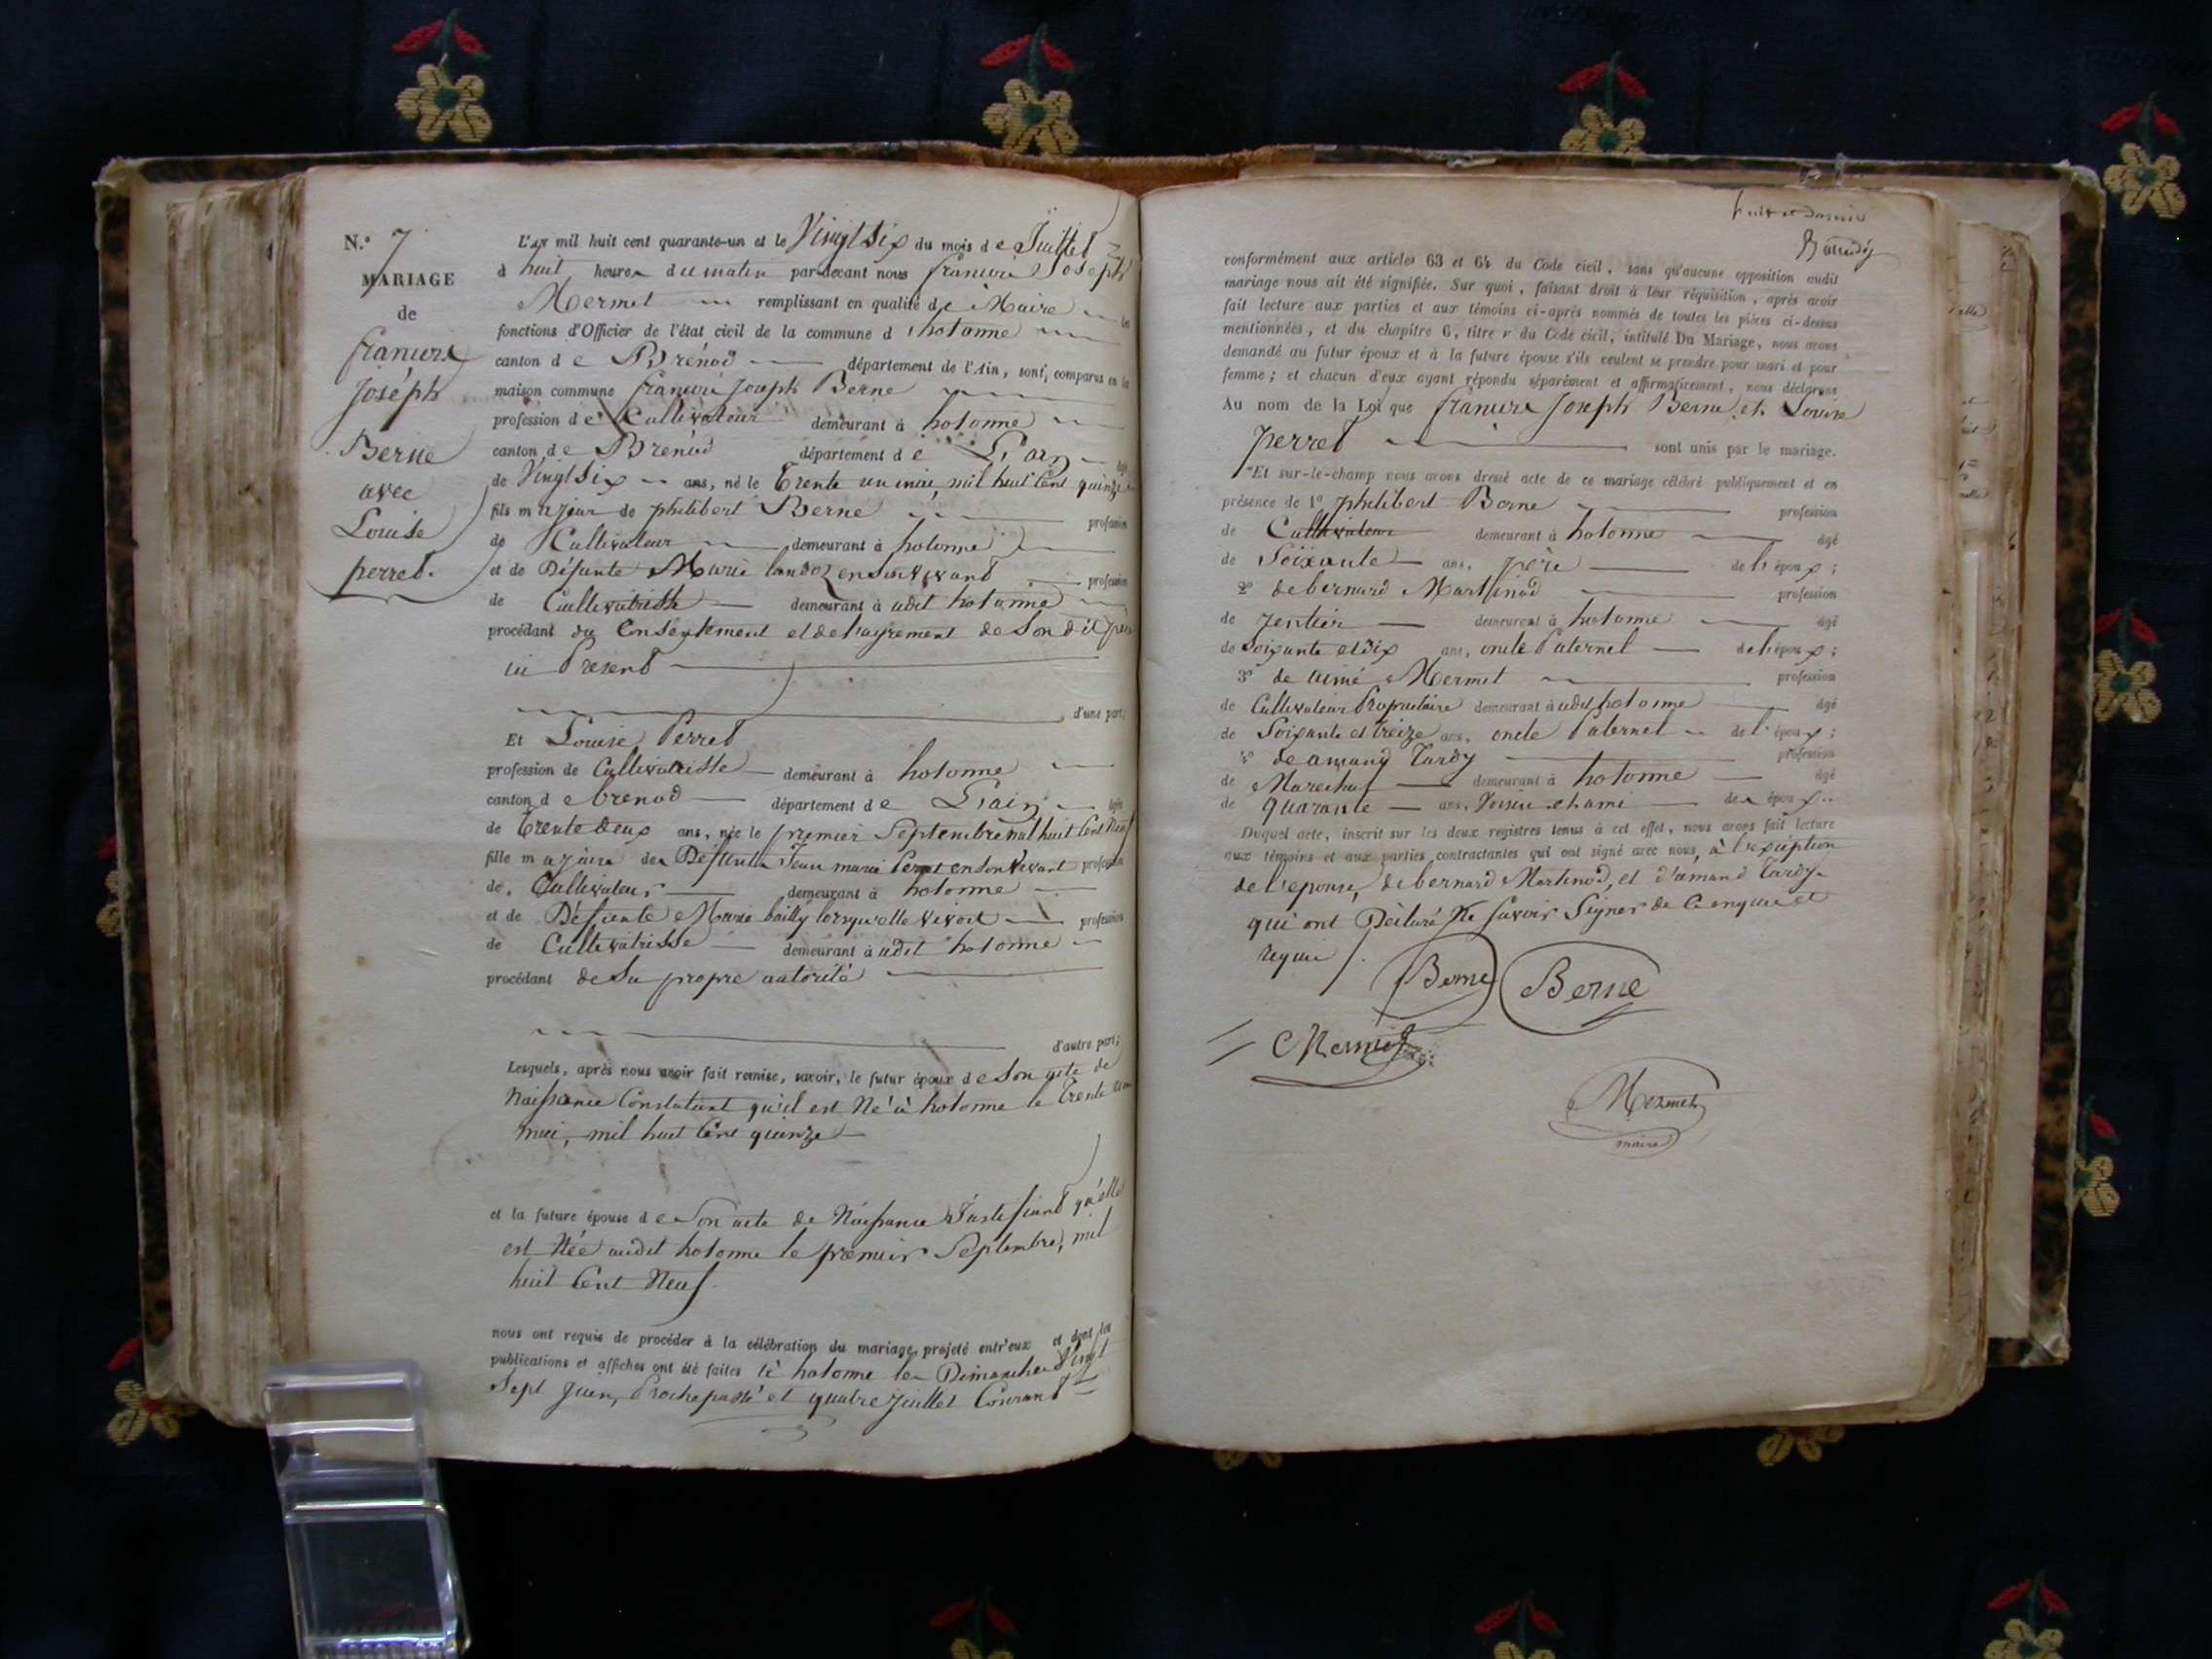 N.° 7
MARIAGE
de
françois
Joseph
Berne
avec
Louise
perret.
L'an mil huit cent quarante-un et le Vingt Six du mois de Juillet
à huit heures du matin par-devant nous françois Joseph
Mermet remplissant en qualité de Maire les
fonctions d'Officier de l'état civil de la commune d'hotonne
canton de Brénod département de l'Ain, sont comparus en la
maison commune françois Joseph Berne
profession de Cultivateur demeurant à hotonne
canton de Brénod département de L'ain âgé
de Vingt Six ans, né le trente un mai, mil huit Cent quinze
fils majeur de philibert Berne profession
de Cultivateur demeurant à hotonne
et de Défunte Marie landoz en Son vivant profession
de Cultivatrisse demeurant à udit hotonne
procédant du Consentement et de l'agrement de Son dit père
ici Présent
d'une part;
Et Louise Perret
profession de Cultivatrisse demeurant à hotonne
canton de brenod département de L'ain âgée
de trente deux ans, née le premier Septembre mil huit Cent Neuf
fille majeure de Défunt Jean marie Perret en Son vivant profession
de Cultivateur demeurant à hotonne
et de Défunte Marie bailly lorsquelle vivoit profession
de Cultivatrisse demeurant à udit hotonne
procédant de Sa propre autorité
d'autre part;
Lesquels, après nous avoir fait remise, savoir, le futur époux de Son acte de
Naissance Constatant qu'il est Né à hotonne le trente un
mai, mil huit Cent quinze
et la future épouse de Son acte de Naissance Justifiant qu'elle
est Née audit hotonne le premier Septembre, mil
huit Cent Neuf.
nous ont requis de procéder à la célébration du mariage projeté entr'eux et dont les
publications et affiches ont été faites à hotonne les Dimanches Vingt
Sept Juin, Proche passé et quatre Juillet Courant
huit et dernier
conformément aux articles 63 et 64 du Code civil, sans qu'aucune opposition audit
mariage nous ait été signifiée. Sur quoi, faisant droit à leur réquisition, après avoir
fait lecture aux parties et aux témoins ci-après nommés de toutes les pièces ci-dessus
mentionnées, et du chapitre 6, titre v du Code civil, intitulé Du Mariage, nous avons
demandé au futur époux et à la future épouse s'ils veulent se prendre pour mari et pour
femme; et chacun d'eux ayant répondu séparément et affirmativement, nous déclarons
Au nom de la Loi que françois Joseph Berne et Louise
perret sont unis par le mariage.
Et sur-le-champ nous avons dressé acte de ce mariage célébré publiquement et en
présence de 1° philibert Berne profession
de Cultivateur demeurant à hotonne âgé
de Soixante ans, père de l'époux;
2° de bernard Martinod profession
de rentier demeurant à hotonne âgé
de Soixante et dix ans, oncle Paternel de l'époux;
3° de aimé Mermet profession
de Cultivateur Propriétaire demeurant à udit hotonne âgé
de Soixante et treize ans, oncle Paternel de l'époux;
4° de amand tardy profession
de Marechal demeurant à hotonne âgé
de quarante ans, Voisin et ami des époux.
Duquel acte, inscrit sur les deux registres tenus à cet effet, nous avons fait lecture
aux témoins et aux parties contractantes qui ont signé avec nous, à l'exception
de l'epouse, de bernard Martinod, et d'amand tardy
qui ont Déclaré Ne Savoir Signer de Ce enquis et
requis
Berne Berne
Mermet
Mermet
maire